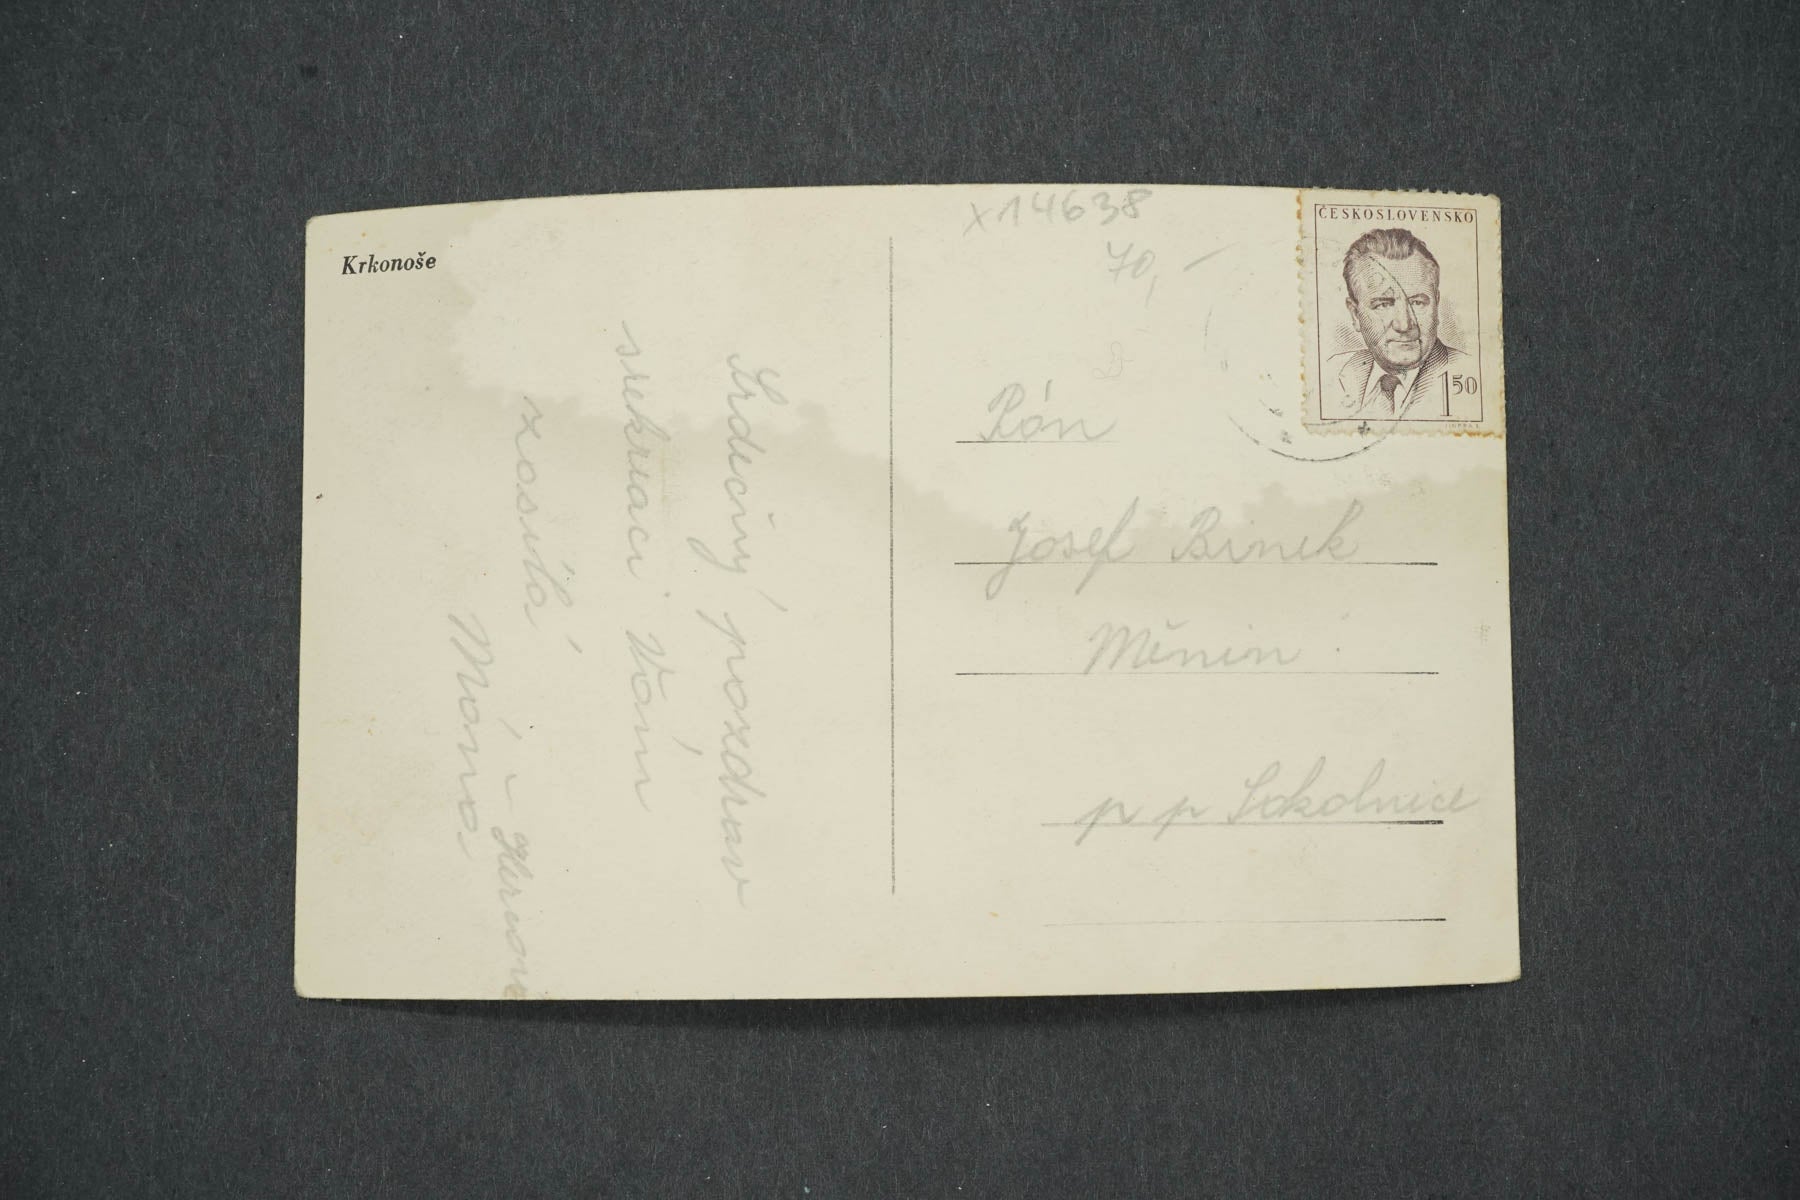 Krkonoše
Srdečný pozdrav
Vám
zasílá
Máňa
x14638
70,-
ČESKOSLOVENSKO
1 50
Pán
Josef Binek
Měnín
p p Sokolnice